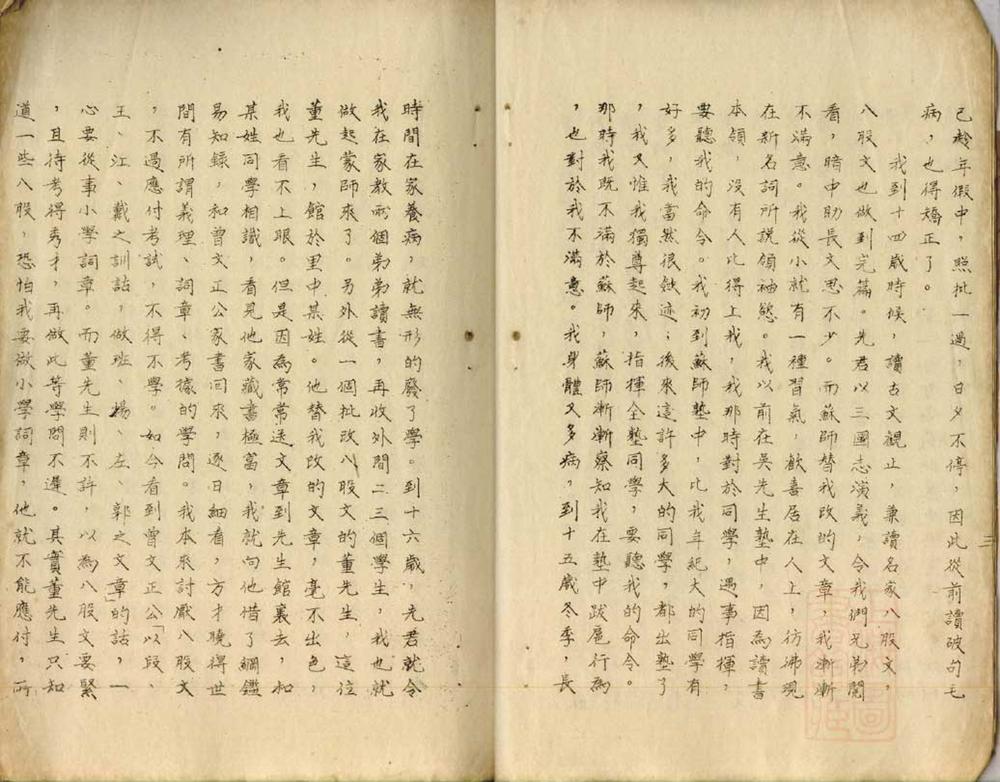 三
己齡年假中，照批一過，日夕不停，因此從前讀破句毛
病，也得矯正了。
我到十四歲時候，讀古文觀止，兼讀名家八股文，
八股文也做到完篇。先君以三國志演義，令我們兄弟閱
看，暗中助長文思不少。而蘇師替我改的文章，我漸漸
不滿意。我從小就有一種習氣，歡喜居在人上，彷彿現
在新名詞所說領袖慾。我以前在吳先生塾中，因為讀書
本領，沒有人比得上我，我那時對於同學，遇事指揮，
要聽我的命令。我初到蘇師塾中，比我年紀大的同學有
好多，我當然很斂迹；後來這許多大的同學，都出塾了
，我又惟我獨尊起來，指揮全塾同學，要聽我的命令。
那時我既不滿於蘇師，蘇師漸漸察知我在塾中跋扈行為
，也對於我不滿意。我身體又多病，到十五歲冬季，長
時間在家養病，就無形的廢了學。到十六歲，先君就令
我在家教兩個弟弟讀書，再收外間二三個學生，我也就
做起蒙師來了。另外從一個批改八股文的董先生，這位
董先生，館於里中某姓。他替我改的文章，毫不出色，
我也看不上眼。但是因為常常送文章到先生館裏去，和
某姓同學相識，看見他家藏書極富，我就向他借了綱鑑
易知錄，和曾文正公家書回來，逐日細看，方才曉得世
間有所謂義理、詞章、考據的學問。我本來討厭八股文
，不過應付考試，不得不學。如今看到曾文正公「以段、
王、江、戴之訓詁，做班、揚、左、郭之文章」的話，一
心要從事小學詞章。而董先生則不許，以為八股文要緊
，且待考得秀才，再做此等學問不遲。其實董先生只知
道一些八股，恐怕我要做小學詞章，他就不能應付，所